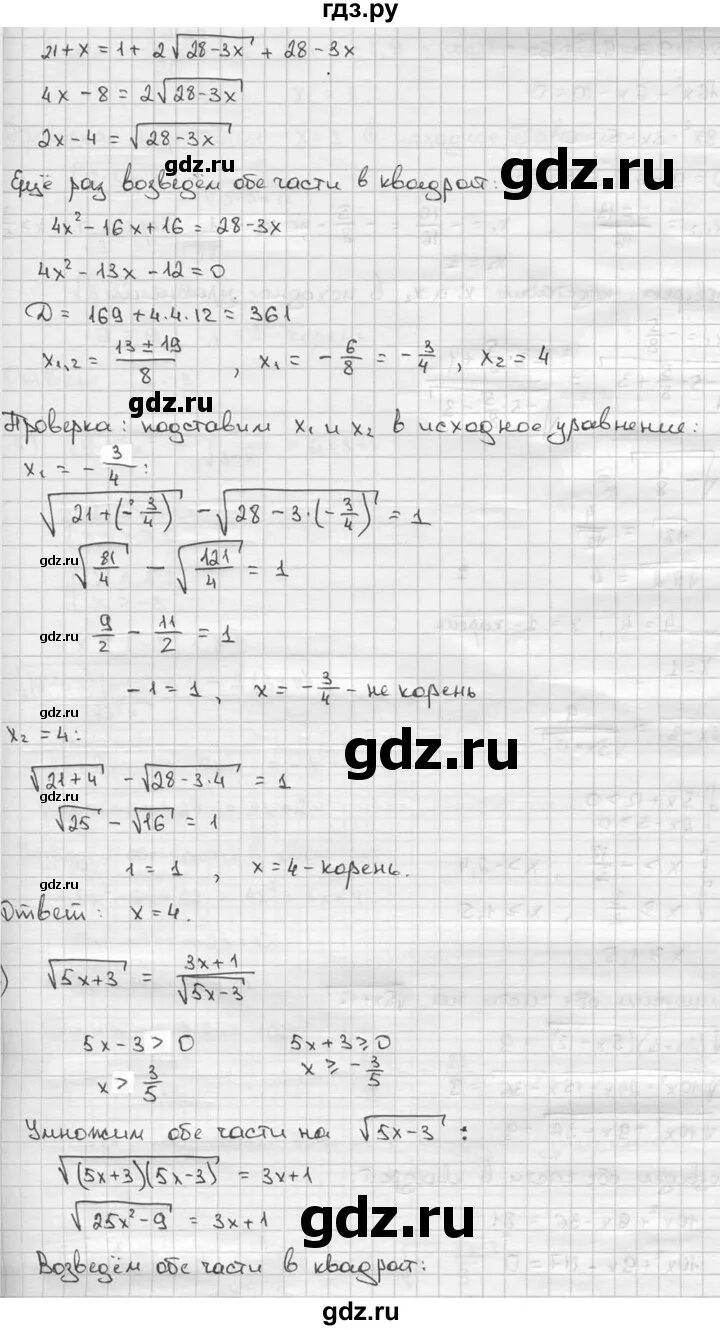 гдз.ру
21 + x = 1 + 2√(28-3x) + 28 - 3x
4x - 8 = 2√(28-3x)
2x - 4 = √(28-3x)
gdz.ru
gdz.ru
Ещё раз возведём обе части в квадрат:
4x² - 16x + 16 = 28 - 3x
4x² - 13x - 12 = 0
D = 169 + 4·4·12 = 361
x₁,₂ = (13 ± 19)/8, x₁ = -6/8 = -3/4, x₂ = 4
gdz.ru
Проверка: подставим x₁ и x₂ в исходное уравнение:
x₁ = -3/4:
√(21+(-3/4)) - √(28-3·(-3/4)) = 1
gdz.ru
√(81/4) - √(121/4) = 1
gdz.ru
9/2 - 11/2 = 1
-1 = 1, x = -3/4 - не корень
gdz.ru
x₂ = 4:
gdz.ru
√(21+4) - √(28-3·4) = 1
gdz.ru
√25 - √16 = 1
1 = 1, x = 4 - корень.
gdz.ru
Ответ: x = 4.
) √(5x+3) = (3x+1)/√(5x-3)
5x - 3 > 0 5x + 3 ≥ 0
x > 3/5 x ≥ -3/5
Умножим обе части на √(5x-3):
√((5x+3)(5x-3)) = 3x+1
√(25x²-9) = 3x+1
gdz.ru
Возведём обе части в квадрат:
gdz.ru